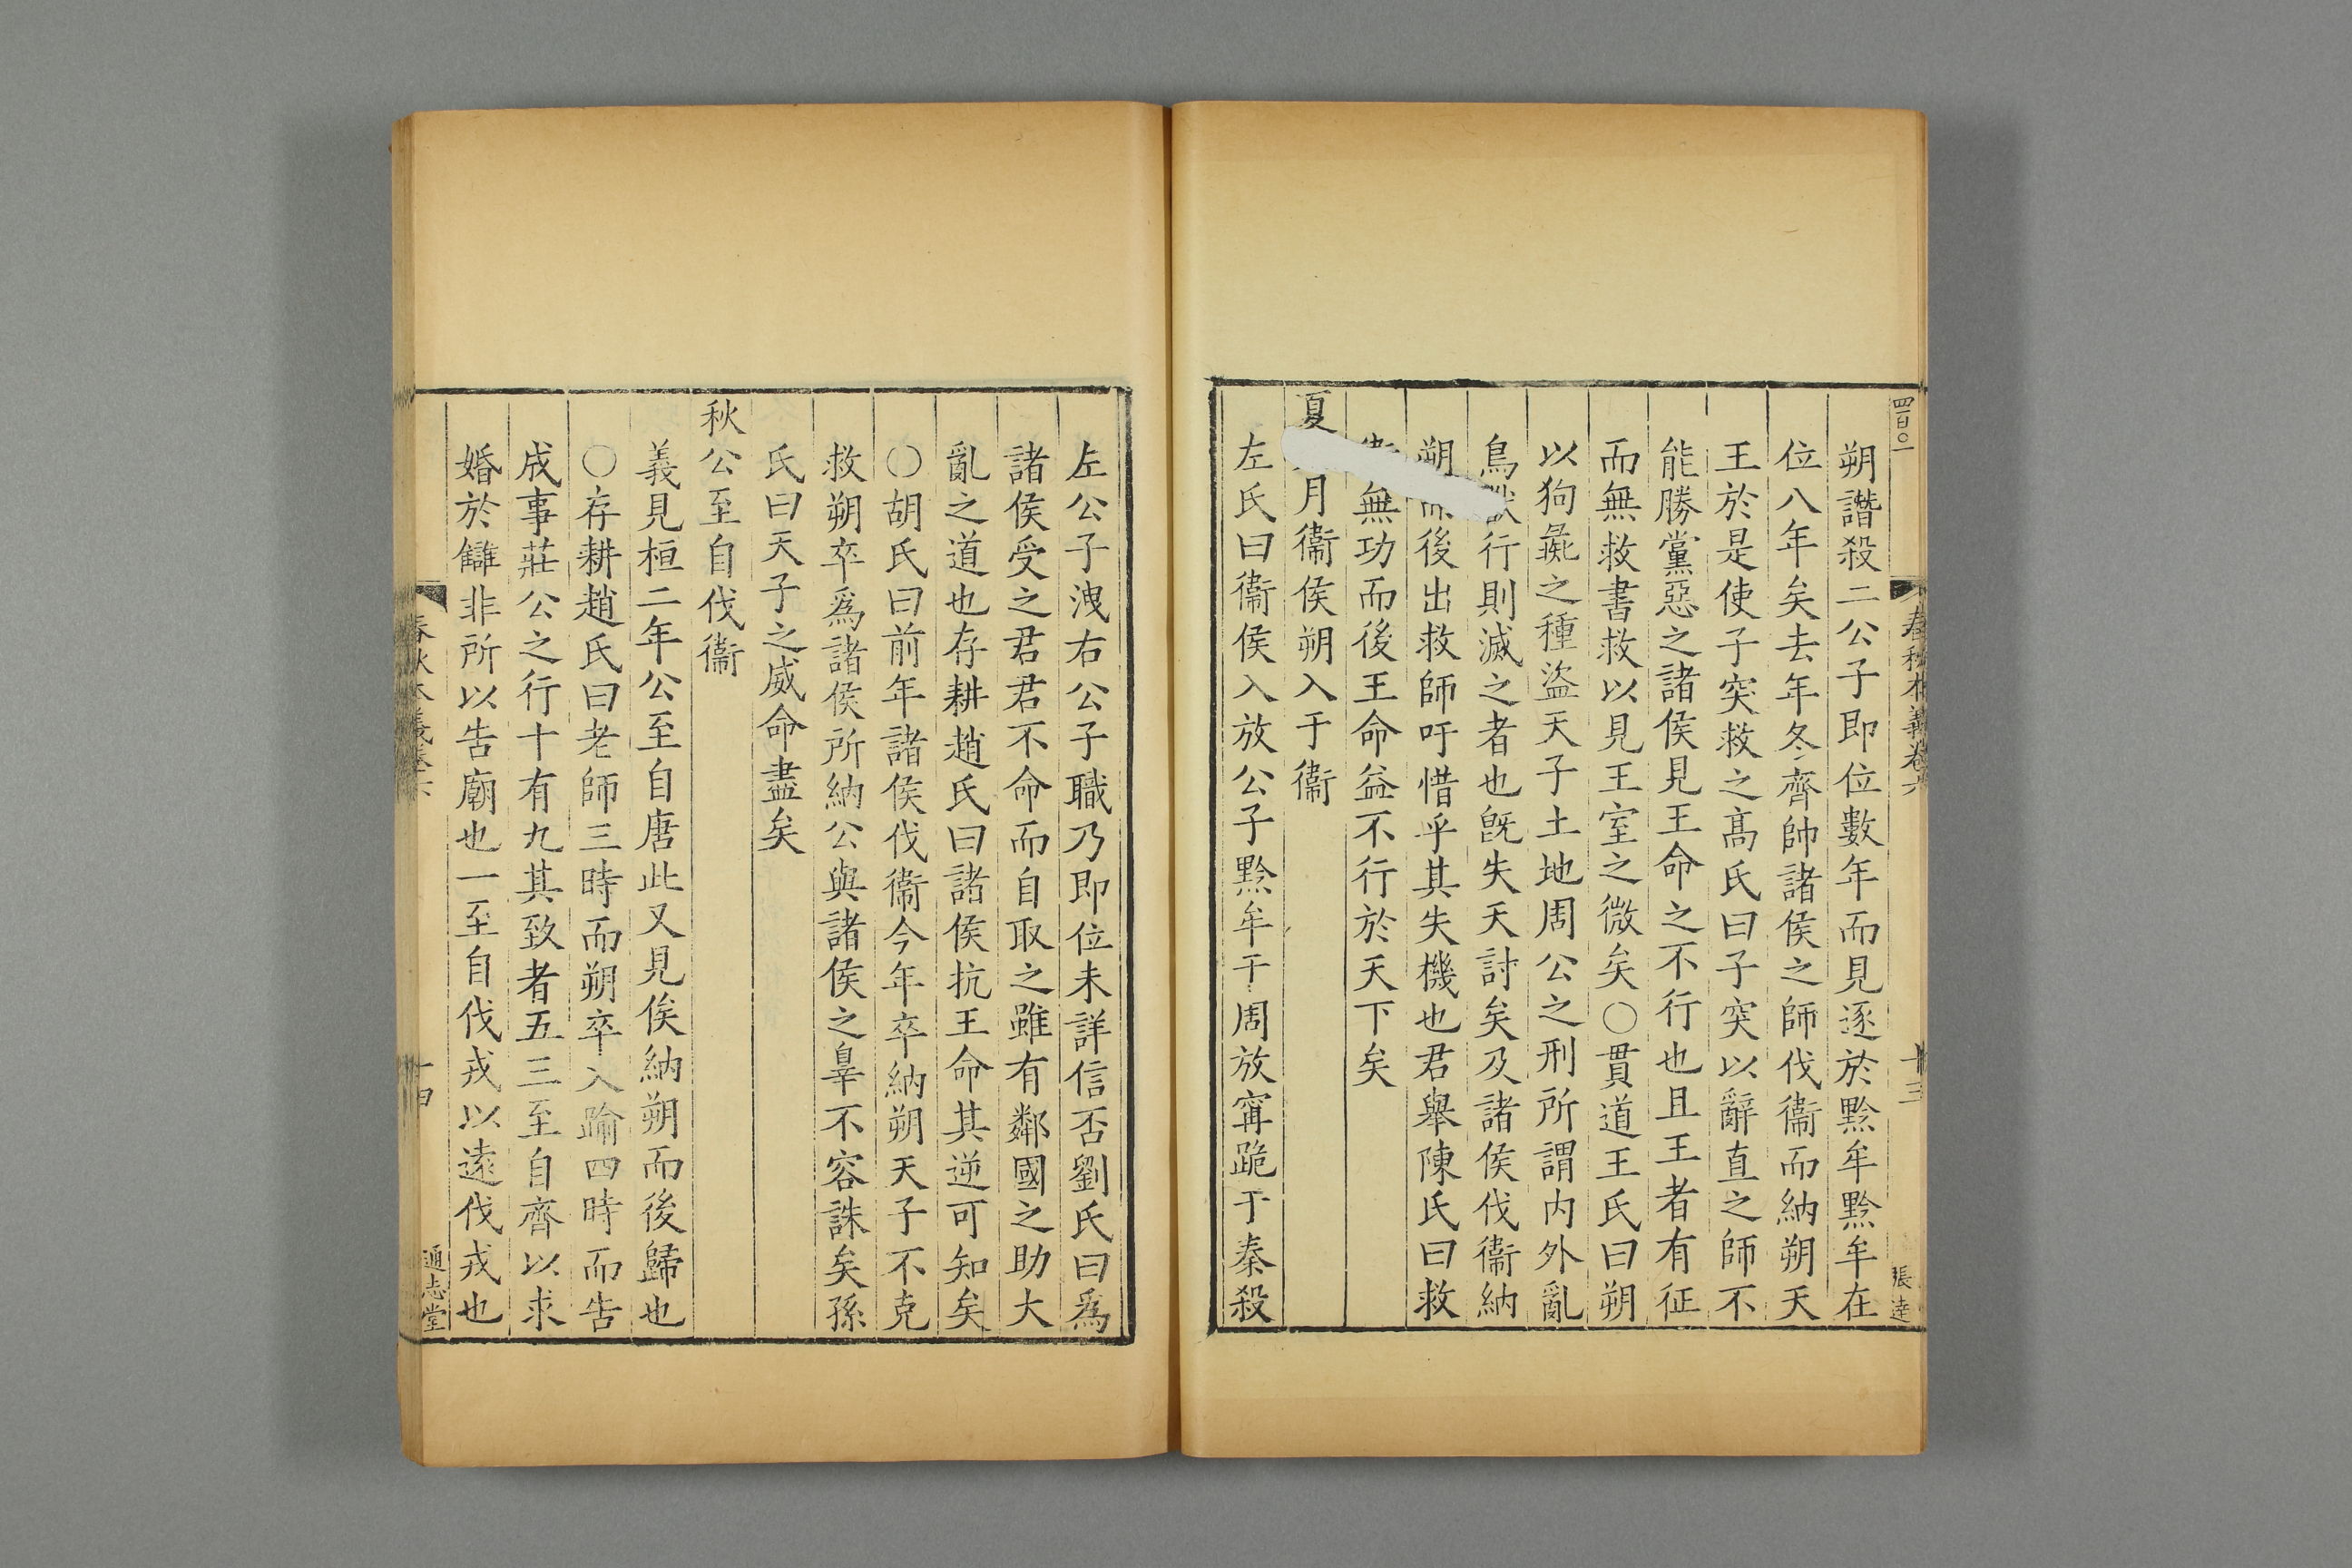 四百〇一
春秋本義卷六
十三
張逵
朔譖殺二公子即位數年而見逐於黔牟黔牟在
位八年矣去年冬齊帥諸侯之師伐衞而納朔天
王於是使子突救之高氏曰子突以辭直之師不
能勝黨惡之諸侯見王命之不行也且王者有征
而無救書救以見王室之微矣○貫道王氏曰朔
以狗彘之種盜天子土地周公之刑所謂内外亂
鳥獸行則滅之者也旣失天討矣及諸侯伐衞納
朔而後出救師吁惜乎其失機也君舉陳氏曰救
衞無功而後王命益不行於天下矣
夏月衞侯朔入于衞
左氏曰衞侯入放公子黔牟于周放甯跪于秦殺
左公子洩右公子職乃即位未詳信否劉氏曰爲
諸侯受之君君不命而自取之雖有鄰國之助大
亂之道也存耕趙氏曰諸侯抗王命其逆可知矣
○胡氏曰前年諸侯伐衞今年卒納朔天子不克
救朔卒爲諸侯所納公與諸侯之辠不容誅矣孫
氏曰天子之威命盡矣
秋公至自伐衞
義見桓二年公至自唐此又見俟納朔而後歸也
○存耕趙氏曰老師三時而朔卒入踰四時而告
成事莊公之行十有九其致者五三至自齊以求
婚於讎非所以告廟也一至自伐戎以遠伐戎也
春秋本義卷六
十四
通志堂